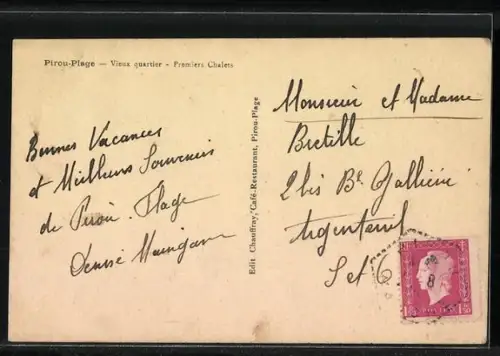 Pirou-Plage — Vieux quartier - Premiers Chalets
Bonnes Vacances
et Meilleurs Souvenirs
de Pirou. Plage
Denise
Edit. Chauffray, Café-Restaurant, Pirou-Plage
Monsieur et Madame
Bretille
2 bis Bd Gallieni
Argenteuil
S et O
8